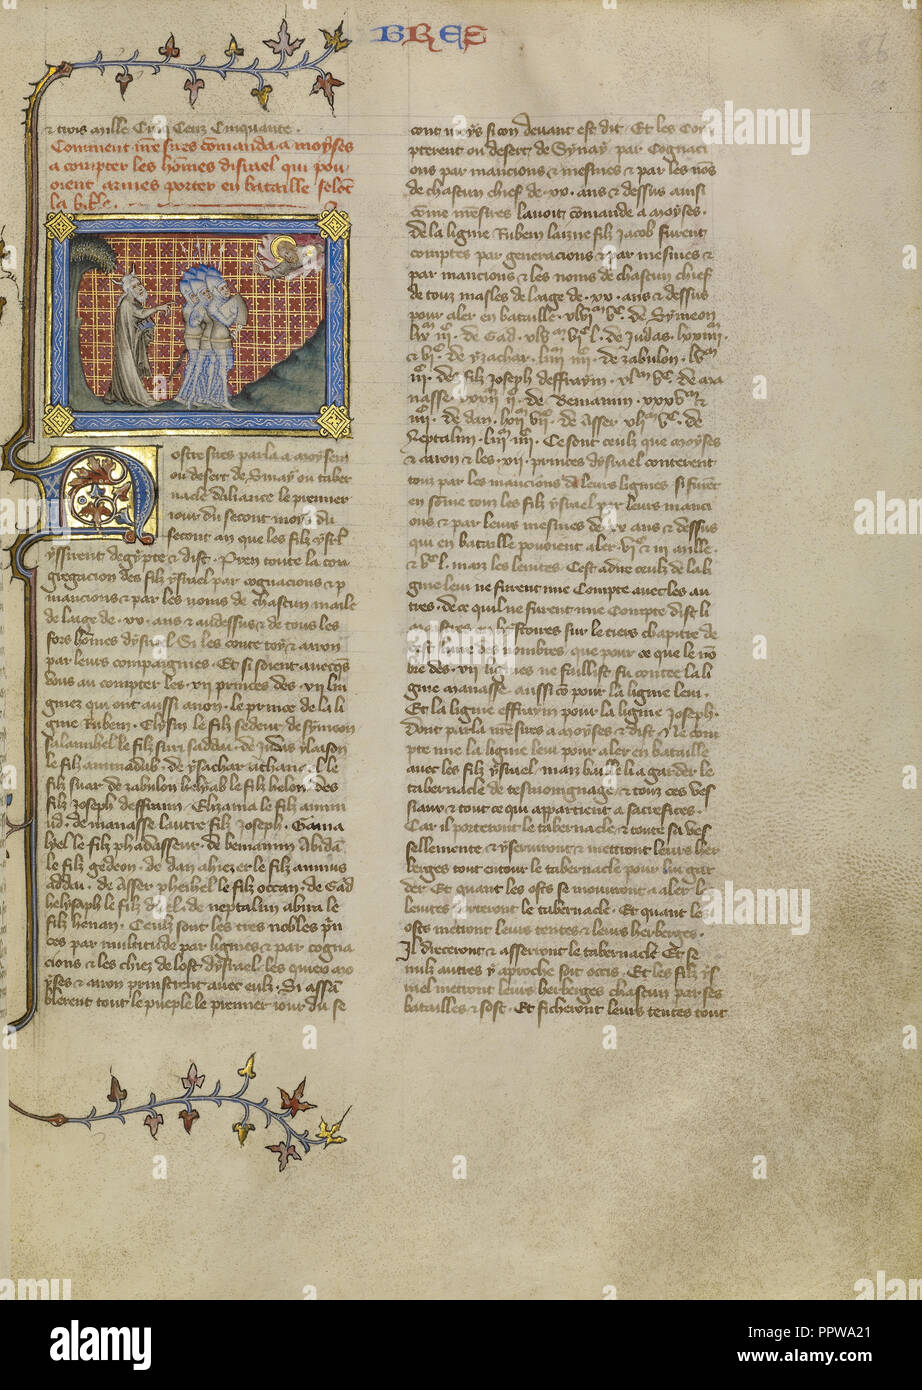 BRES
86
& trois mille Cinq Cenz Cinquante.
Comment nre sires comanda a moyses
a compter les hommes disrael qui pou
oient armes porter en bataille selonc
la bible
Nostre sires parla a moysen
ou desert de Synay ou taber
nacle daliance le premier
iour du secont moys du
secont an que les filz ysrl
yssirent degypte & dist. Pren toute la con
gregacion des filz ysrael par cognacions & p
mancions & par les noms de chascun masle
de laage de .xx. ans & audessus & de tous les
fors hommes dysrael Si les conte toy & aaron
par leurs compaignies. Et si soient avecqs
vous au compter les .xii princes des .xii lin
gniez qui ont aussi a non. le prince de la li
gnie Ruben. Elysur le filz sedeur de symeon
salamihel le filz suri saddau. de Iudas naason
le filz aminadab. de ysachar
filz suar de zabulon helyab le filz helon. des
filz Joseph deffraim. Elizama le filz amiu
ud. de manasse lautre filz Joseph. Gama
lyel le filz phadasseur. de beniamin Abidan
le filz gedeon. de dan ahiezer le filz amisus
addau. de Asser pheihel le filz occran. de Gad
helysaph le filz duel. de neptalim ahira le
filz henan. Ceulz sont les tres nobles prin
ces par multitude par lignies & par cogna
cions & les chiez de lost dysrael les quiex mo
yses & aaron pristrent avec eulz. Si assam
blerent tout le pueple le premier iour du se
cont moys si con devant est dit. Et les Com
pterent ou desert de Synay par Cognaci
ons par mancions & mesnies & par les noms
de chascun chief de .xx. ans & dessus ausi
come nre sires lavoit comande a moyses.
de la lignie Ruben laisne filz Jacob furent
comptes par generacions & par mesnies &
par mancions & les noms de chascun chief
de touz masles de laage de .xx. ans & dessus
pour aler en bataille de Symeon
de Gad de Iudas
de yzachar de zabulon
des filz Joseph deffraym de ma
nasse de Beniamin
de dan de Asser de
Neptalim Ce sont ceulz que moyses
& aaron & les .xii. princes dysrael conterent
touz par les mancions de leurs lignies. si furent
en some touz les filz ysrael par leurs manci
ons & par leurs mesnies de .xx ans & dessus
qui en bataille pouoient aler .vi & iii mille.
& l. maiz les levites. Cest adire ceulz de la li
gnie levi ne furent mie Compte avec les au
tres. de ce quil ne furent mie Compte dist li
maistres en hystoires sur le tiers chapitre de
cest livre des nombres que pour ce que le nom
bre des .xii lignies ne faillist fu contee la li
gnie manasse aussi co pour la lignie levi.
Et la lignie effraym pour la lignie Joseph.
Dont parla nre sires a moyses & dist Ne com
pte mie la lignie levi pour aler en bataille
avec les filz ysrael. maiz baille li a garder le
tabernacle de tesmoingnage & touz ces ves
siaux & tout ce qui appartient a sacrefices.
Car il porteront le tabernacle & toute sa ves
sellemente & y serviront & mettront leurs her
berges tout entour le tabernacle pour lui gar
der Et quant les osts se mouvront a aler le
levites porteront le tabernacle. Et quant les
osts metront leurs tentes & leurs herberges.
Il dreceront & asserront le tabernacle Et se
nulz autres y aproche soit occis. Et les filz ys
rael metront leurs herberges chascun par ses
batailles & sost. Et ficheront leurs tentes tout
alamy
a
Image ID: PPWA21
www.alamy.com